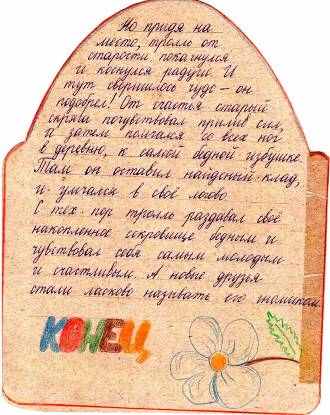 Но придя на
место, тролль от
старости покачнулся
и коснулся радуги. И
тут свершилось чудо - он
подобрел! От счастья старый
скряга почувствовал прилив сил,
и затем помчался со всех ног
в деревню, к самой бедной избушке.
Там он оставил найденный клад,
и умчался в своё логово.
С тех пор тролль раздавал своё
накопленное сокровище бедным и
чувствовал себя самым молодым
и счастливым. А новые друзья
стали ласково называть его гномиком.
КОНЕЦ